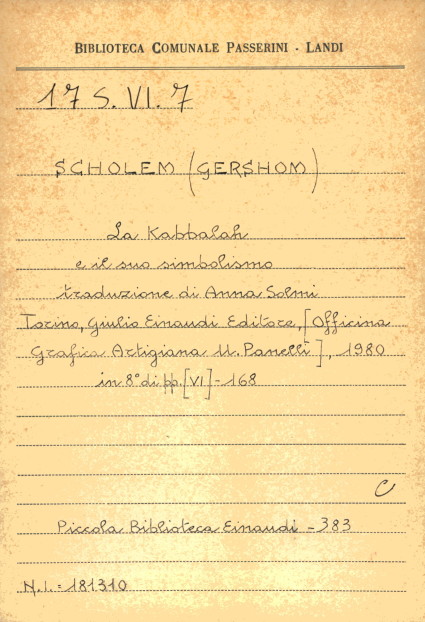 BIBLIOTECA COMUNALE PASSERINI - LANDI
17 S. VI. 7
SCHOLEM (GERSHOM)
La Kabbalah
e il suo simbolismo
traduzione di Anna Solmi
Torino, Giulio Einaudi Editore, [Officina
Grafica Artigiana U. Panelli], 1980
in 8° di pp. [VI] - 168
C
Piccola Biblioteca Einaudi - 383
N.I. = 181310